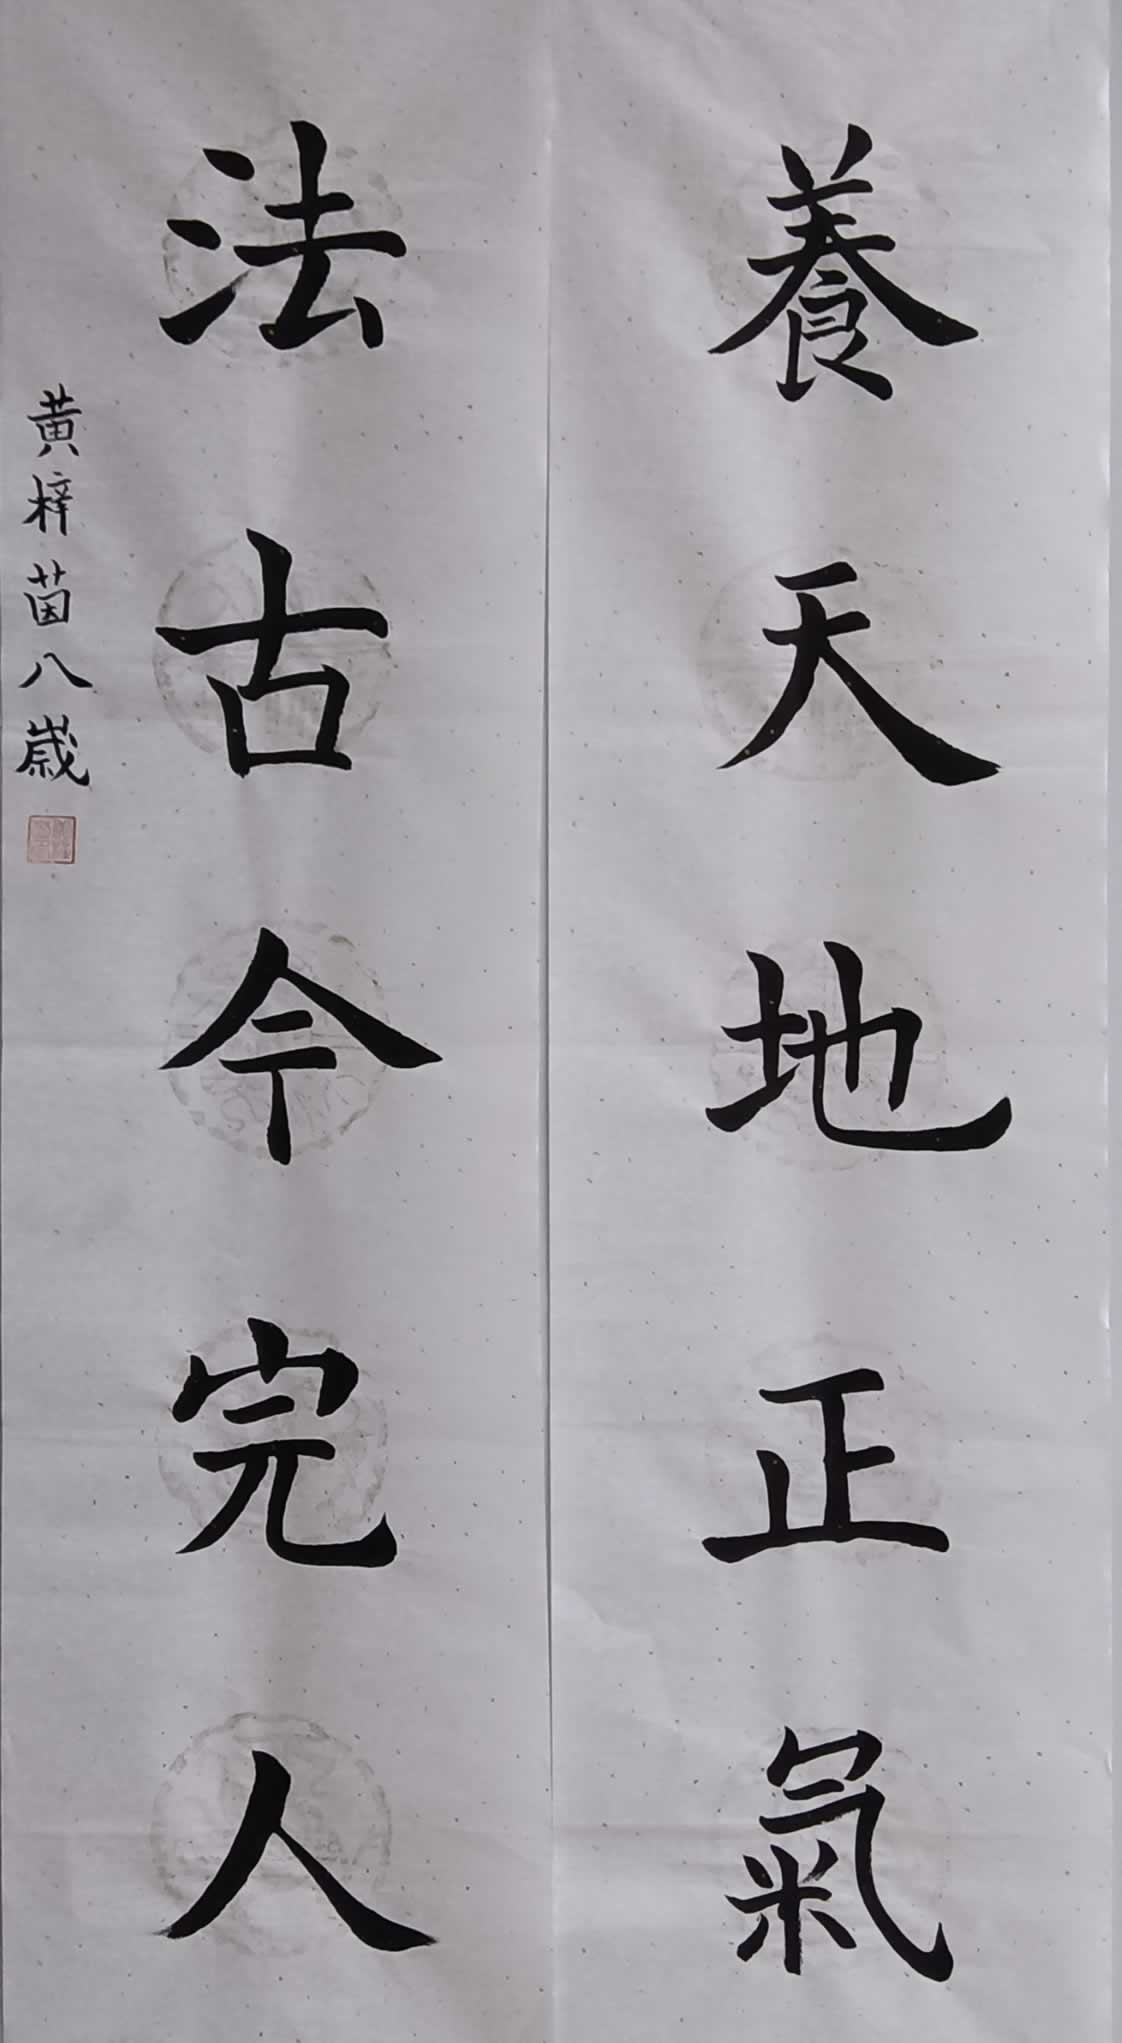 養天地正氣
法古今完人
黄梓茵八歲